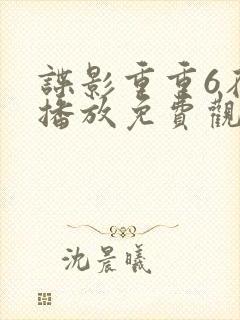 諜影重重6在
播放免費觀
沈晨曦